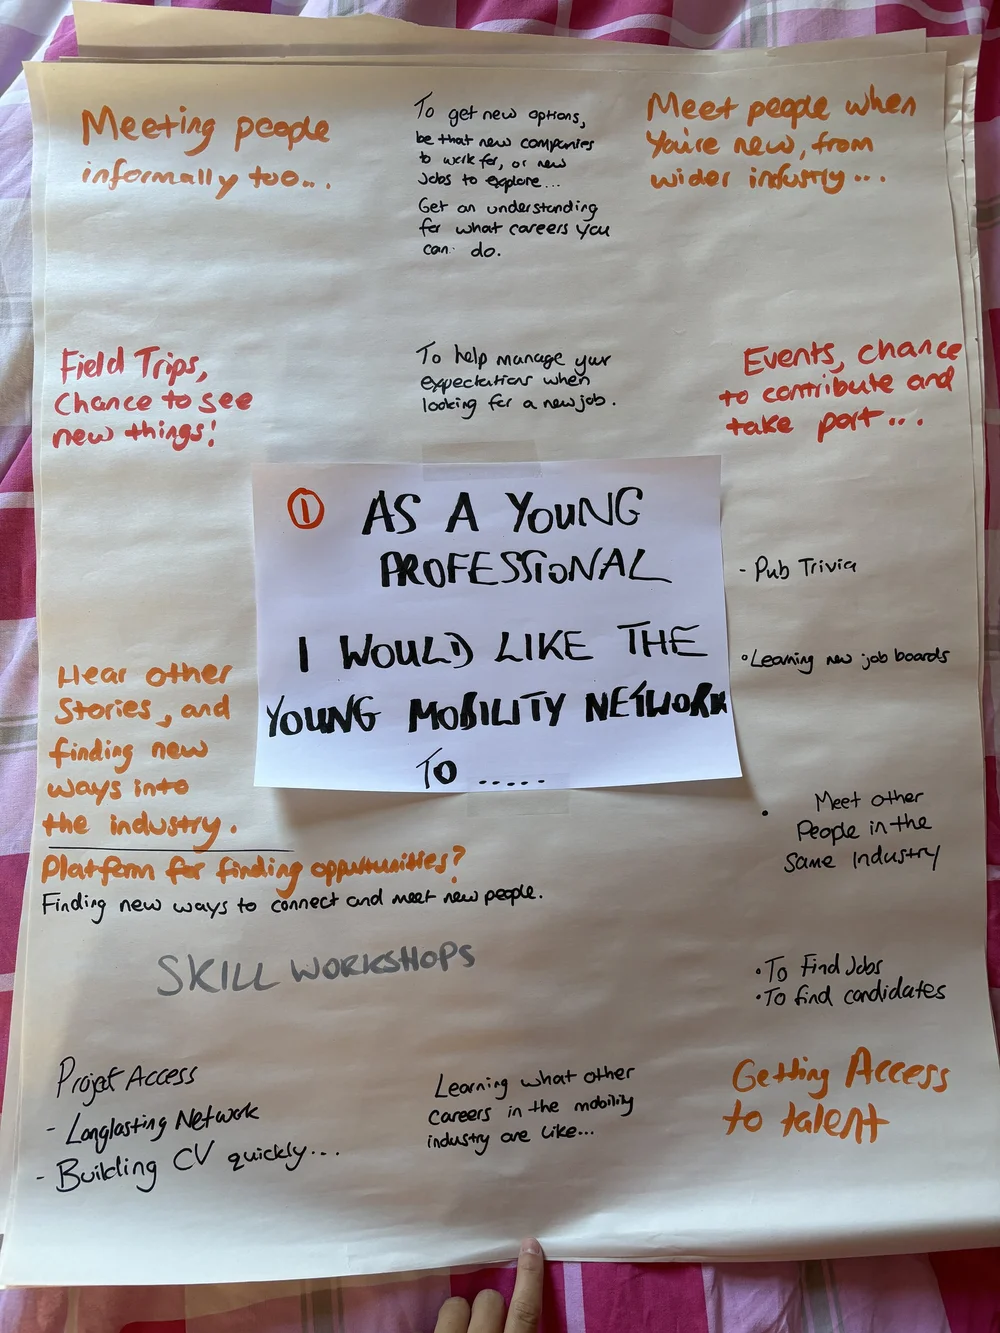 Meeting people
informally too...
To get new options,
be that new companies
to work for, or new
Jobs to explore...
Get an understanding
for what careers you
can do.
Meet people when
You're new, from
wider industry...
Field Trips,
Chance to see
new things!
To help manage your
expectations when
looking for a new job.
Events, chance
to contribute and
take part...
1 AS A YOUNG
PROFESSIONAL
I WOULD LIKE THE
YOUNG MOBILITY NETWORK
TO .....
- Pub Trivia
• Learning new job boards
Hear other
Stories, and
finding new
ways into
the industry.
• Meet other
People in the
Same Industry
Platform for finding opportunities?
Finding new ways to connect and meet new people.
SKILL WORKSHOPS
• To Find Jobs
• To find candidates
Project Access
- Longlasting Network
- Building CV quickly...
Learning what other
careers in the mobility
industry are like...
Getting Access
to talent